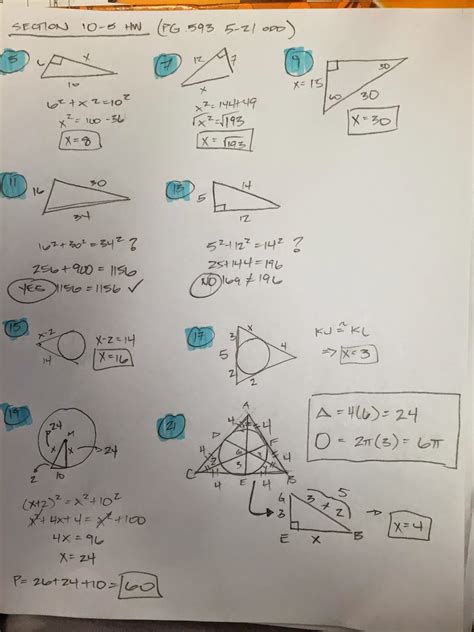 SECTION 10-5 HW (PG. 593 5-21 ODD)
5
6
x
10
6² + x² = 10²
x² = 100 - 36
x = 8
7
12
7
x
x² = 144 + 49
√x² = √193
x = √193
9
x = 15
30
60
30
x = 30
11
16
30
34
16² + 30² = 34² ?
256 + 900 = 1156
YES 1156 = 1156 ✓
13
5
14
12
5² + 12² = 14² ?
25 + 144 = 196
NO 169 ≠ 196
15
x-2
14
x - 2 = 14
x = 16
17
3
x
5
4
2
2
KJ ≅ KL
⇒ x = 3
19
24
M
x
24
2
10
(x+2)² = x² + 10²
x² + 4x + 4 = x² + 100
4x = 96
x = 24
P = 26 + 24 + 10 = 60
21
A
4
4
D
F
4
4
C
4
E
4
B
3
Δ = 4(6) = 24
O = 2π(3) = 6π
G
3
5
2
3
E
x
B
→ x = 4